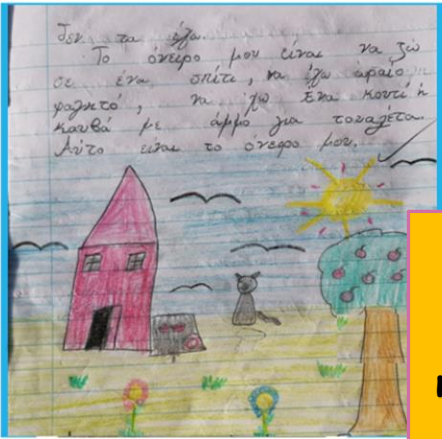 Δεν τα έχω.
Το όνειρο μου είναι να ζώ
σε ένα σπίτι, να έχω ωραίο
φαγητό, να χω ένα κουτί ή
κουβά με άμμό για τουαλέτα.
Αύτο είναι το όνειρο μου.